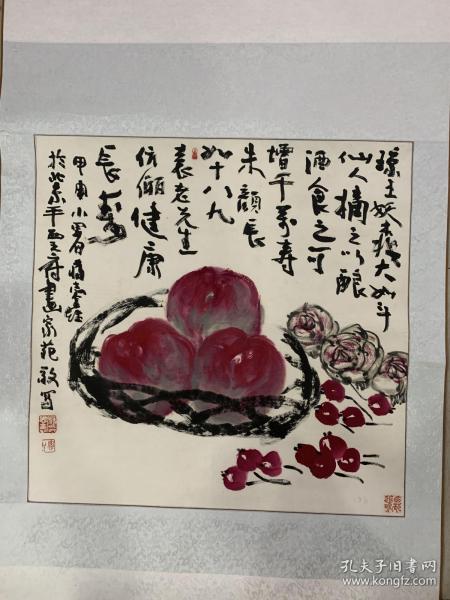 瑶王妖桃大如斗
仙人摘之以酿
酒食之可
增千万寿
朱颜长
如十八九
袁老先生
伉俪健康
长寿
甲申小雪
於北京平西王府画家苑敬写
孔夫子旧书网
www.kongfz.com